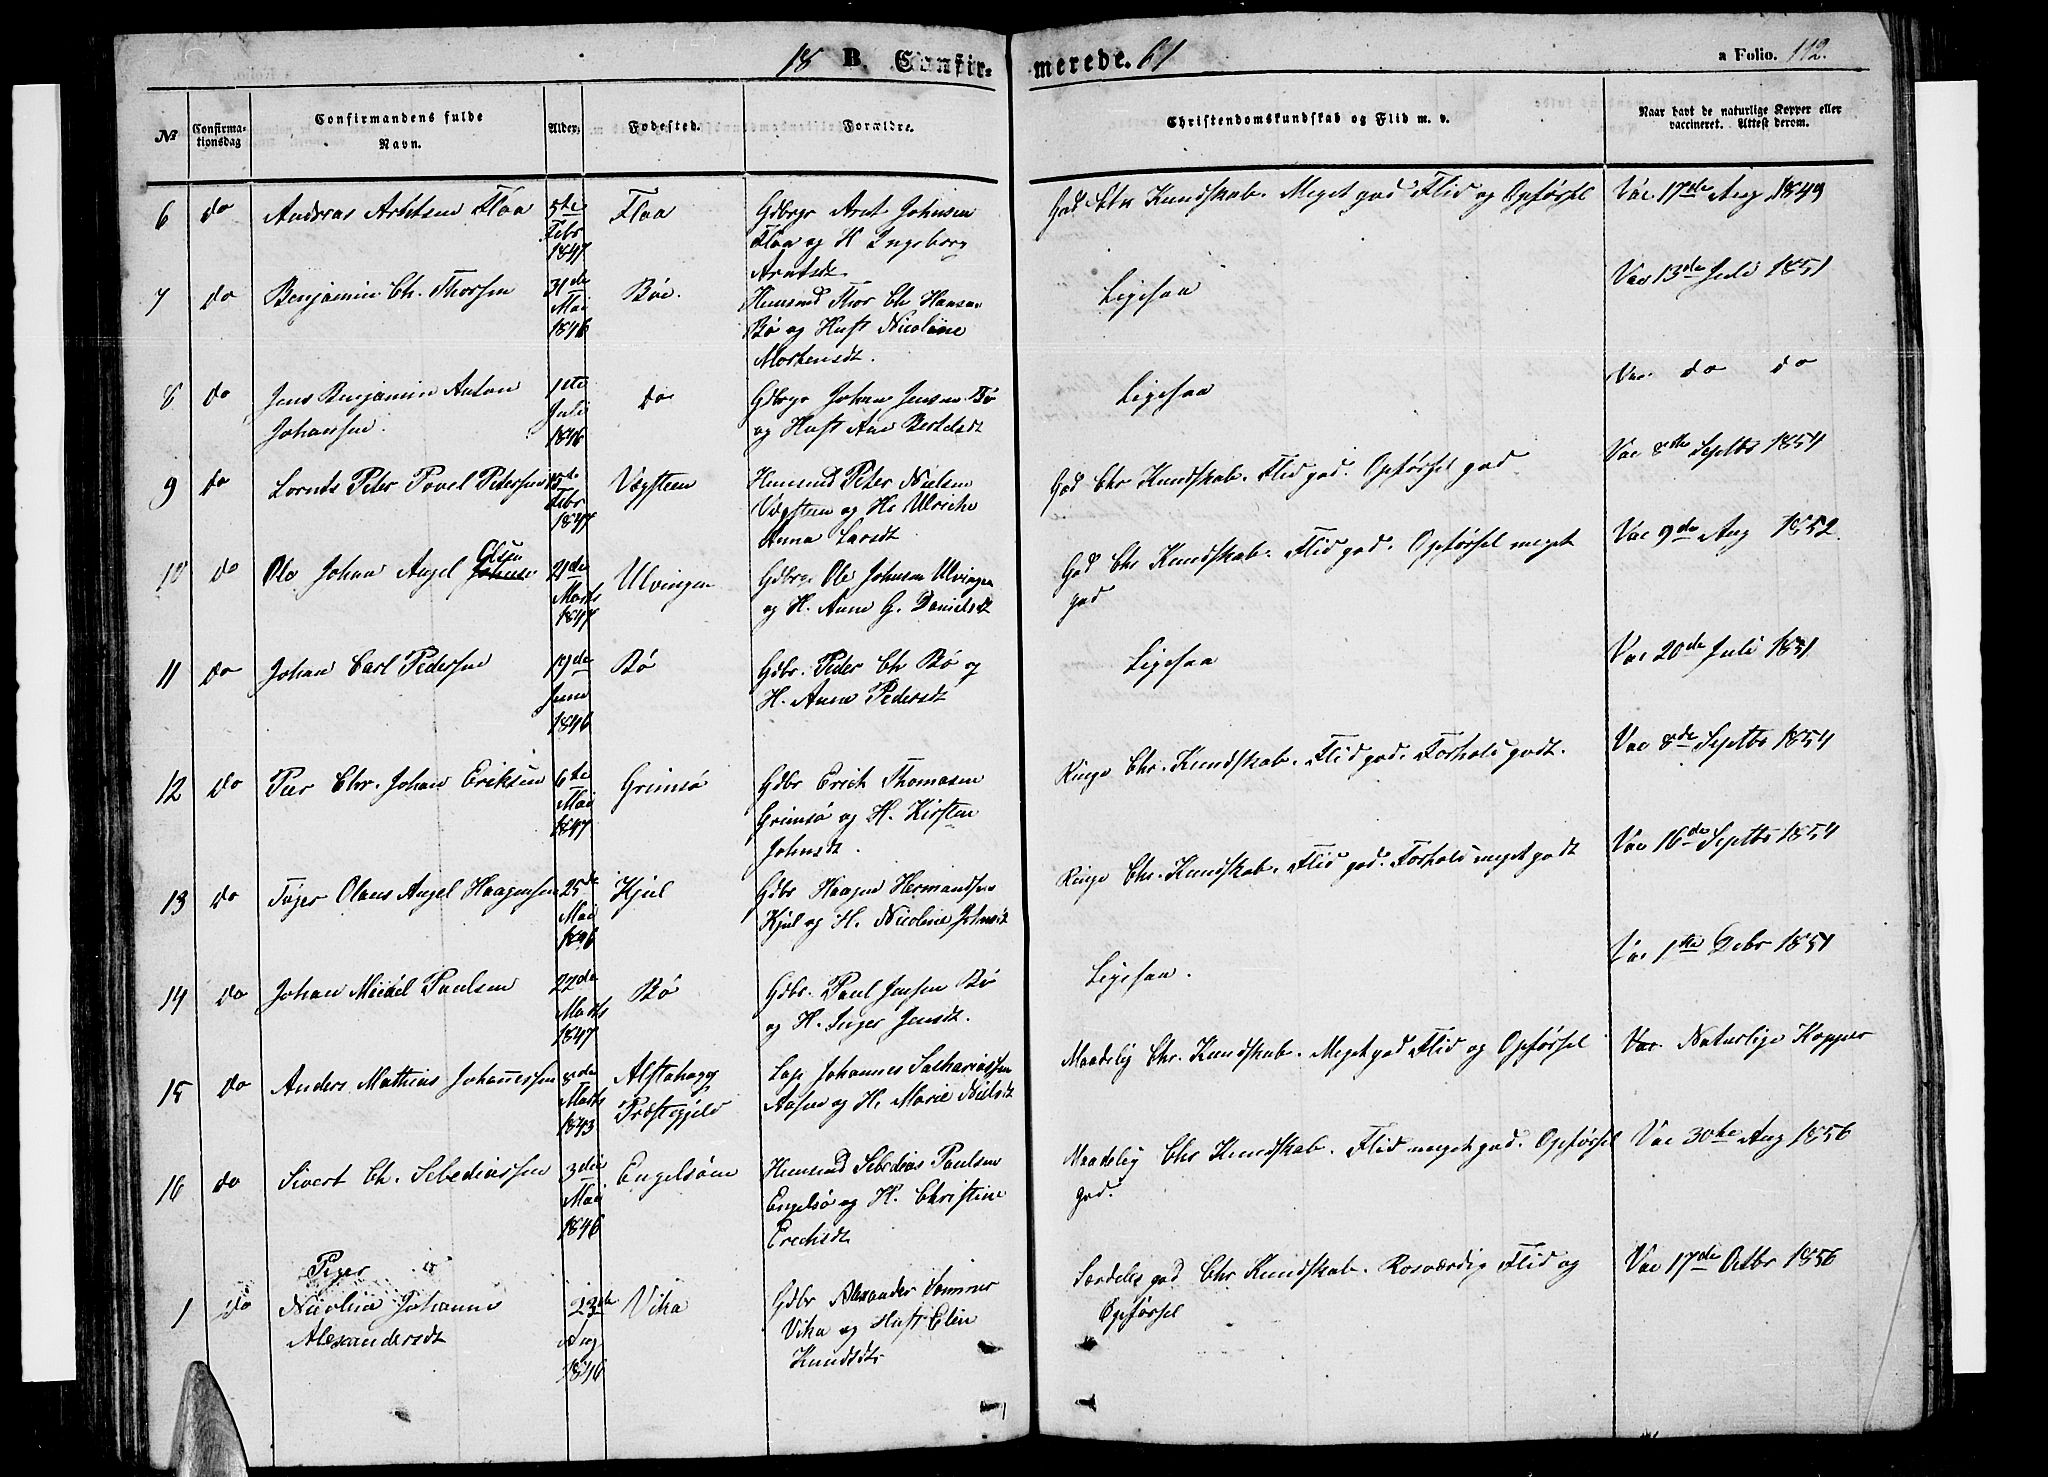 18 B. Confirmerede. 61 a Folio. 112.
No Confirmationsdag Confirmandens fulde Navn. Alder. Fødested. Forældre. Christendomskundskab og Flid m. v. Naar havt de naturlige Kopper eller vaccineret. Attest derom.
6 do Andreas Arntsen Floa 5te Febr 1847 Floa Gdbrgr Arnt Johnsen Floa og H Ingeborg Arntsdt God Chr Kundskab. Meget god Flid og Opførsel Vac 17de Aug 1849
7 do Benjamin Ch. Thorsen 31de Mai 1846 Bøe. Huusmd Thor Ch Hansen Bø og Hust Nicoline Mortensdt. Ligesaa Vac 13de Juli 1851
8 do Jens Benjamin Anton Johansen. 1ste Juli 1846 do Gdbrgr Johan Jensen Bø og Hust Ane Bertelsdt Ligesaa Vac do do
9 do Lornts Peter Povel Petersen 15de Febr 1847 Vægsteen Huusmd Peter Nielsen Vægsteen og H. Ulricke Anna Larsdt God Chr Kundskab. Flid god. Opførsel god Vac 8de Septbr 1854
10 do Ole Johan Angel Olsen Johnsen 21de Marts 1847 Ulvingen Gdbrgr Ole Johnsen Ulvingen og H. Anne G. Danielsdt God Chr Kundskab. Flid god. Opførsel meget god Vac 9de Aug 1852.
11 do Johan Carl Pedersen 19de Juni 1846 Bø Gdbr. Peder Ch Bø og H. Anne Pedersdt Ligesaa Vac 20de Juli 1851
12 do Peer Chr. Johan Eriksen 6te Mai 1847 Grimsø Gdbr Erich Thomasen Grimsø og H. Kirsten Johnsdt. Ringe Chr. Kundskab. Flid god. Forhold godt. Vac 8de Septbr 1854
13 do Tøger Olaus Angel Haagensen 25de Mai 1846 Kjul Gdbr Haagen Hermandsen Kjul og H. Nicoline Johnsdt Ringe Chr. Kundskab. Flid god. Forhold meget godt Vac 16de Septbr 1854
14 do Johan Mikael Paulsen 22de Marts 1847 Bø Gdbr. Paul Jensen Bø og H. Inger Jensdt. Ligesaa. Vac 1ste Debr 1851
15 do Anders Mathias Johannessen 8de Marts 1843 Alstahaug Præstegjeld Lap Johannes Sakariassen Aasen og H. Marie Nielsdt Maadelig Chr. Kundskab. Meget god Flid og Opførsel Vac. Naturlige Kopper
16 do Sivert Ch. Sebediassen 3die Mai 1846 Engelsøen Huusmd Sebedias Paulsen Engelsø og H. Christine Erechsdt Maadelig Chr Kundskab. Flid meget god. Opførsel god. Vac 30te Aug 1856
Piger
1 do Nicoline Johanne Alexandersdt 23de Aug 1846 Vika Gdbr Alexander Sommer Vika og Hust Elen Knudsdt. Særdeles god Chr Kundskab. Rosværdig Flid og Opførsel Vac 17de Octbr 1856